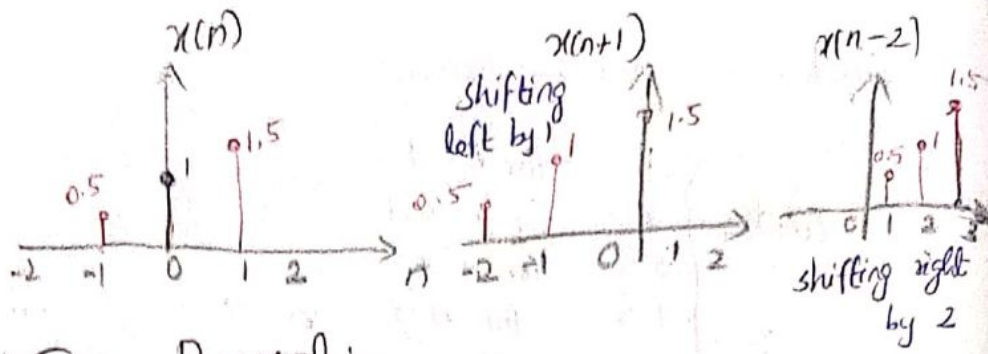 x(n)
0.5
1
1.5
-2 -1 0 1 2
n
x(n+1)
shifting
left by 1
0.5
1
1.5
-2 -1 0 1 2
x(n-2)
0.5
1
1.5
0 1 2
shifting right
by 2